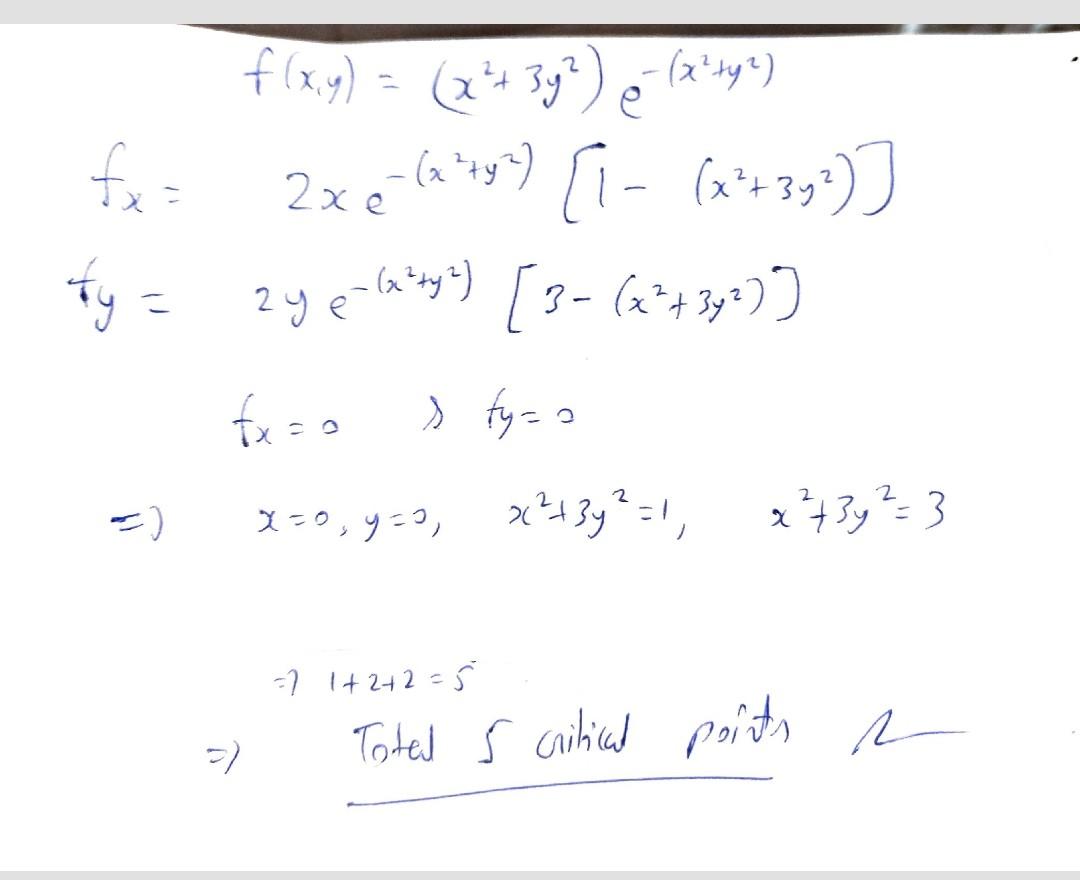 f(x,y) = (x²+ 3y²) e^-(x²+y²)
fx = 2x e^-(x²+y²) [1 - (x²+3y²)]
fy = 2y e^-(x²+y²) [3 - (x²+3y²)]
fx = 0 & fy = 0
=> x=0, y=0, x²+3y²=1, x²+3y²=3
=> 1+2+2=5
=> Total 5 critical points